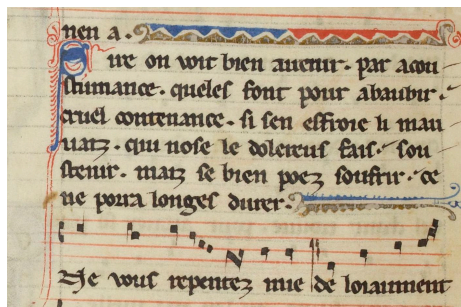 nen a ·
ire on voit bien auenir · par acou
stumance · queles font pour abaubir ·
cruel contenance · si sen effroie li mau
uaiz · qui nose le dolereus fais · sou
stenir · maiz se bien poez souffrir · ce
ne porra longes durer ·
Ne vous repentez mie de loiaument